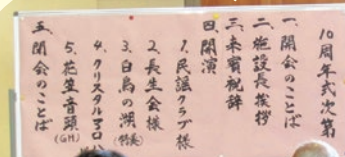 10周年式次第
一、開会のことば
二、施設長挨拶
三、来賓祝辞
四、開演
1. 民謡クラブ様
2. 長生会様
3. 白鳥の湖(特養)
4. クリスタルマロ
5. 花笠音頭(GH)
五、閉会のことば